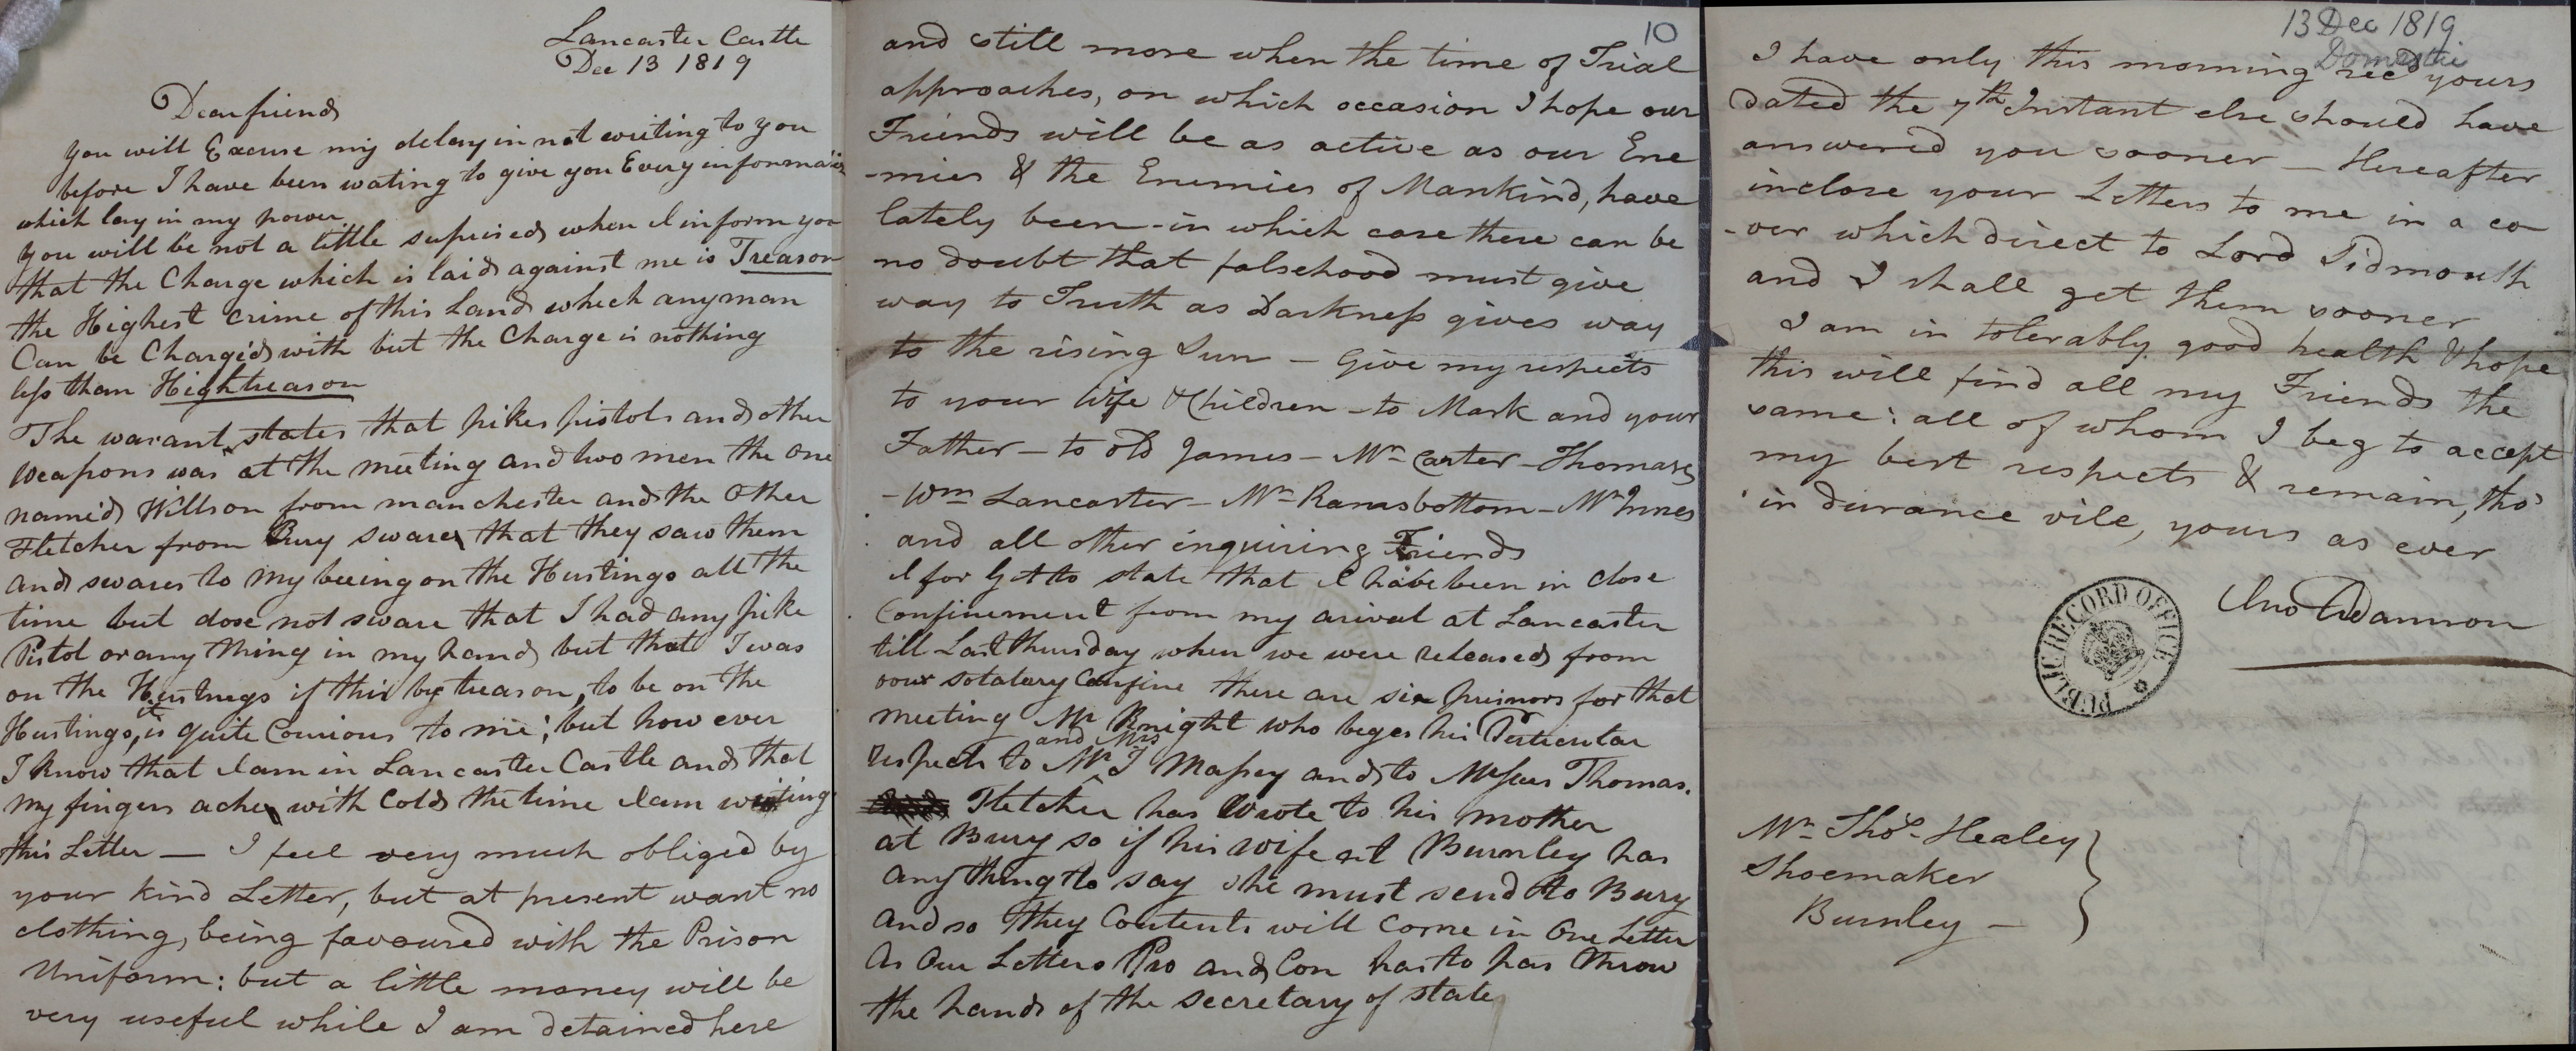 Lancaster Castle
Dec 13 1819
Dear friend
you will Excuse my delay in not writing to you
before I have been wating to give you Every information
which lay in my power
you will be not a little suprised when I inform you
that the Charge which is laid against me is Treason
the Highest crime of this Land which any man
Can be Charged with but the Charge is nothing
less than Hightreason
The warant states that pikes pistols and other
weapons was at the meeting and two men the one
named Willson from manchester and the other
Fletcher from Bury sware that they saw them
and swares to my beeing on the Hustings all the
time but dose not sware that I had any pike
Pistol or any thing in my hand but that I was
on the Hustings if this by treason, to be on the
Hustings, it is quite Courious to me; but how ever
I know that I am in Lancaster Castle and that
my fingers ache with Cold the time I am writing
this Letter — I feel very much obliged by
your kind Letter, but at present want no
clothing, being favoured with the Prison
Uniform: but a little money will be
very useful while I am detained here
10
and still more when the time of Trial
approaches, on which occasion I hope our
Friends will be as active as our Ene
-mies & the Enemies of Mankind, have
lately been - in which case there can be
no doubt that falsehood must give
way to Truth as Darkness gives way
to the rising Sun — Give my respects
to your Wife & Children - to Mark and your
Father - to old James - Mr Carter - Thomas
- Wm Lancaster - Mr Ramsbottom - Mr Innes
and all other inquiring Friends
I for Got to state that I have been in close
Confinement from my arival at Lancaster
till Last thursday when we were released from
our solatary Confine there are six prisnors for that
meeting Mr Knight who beges his Perticular
respects to Mr and Mrs J Massey and to Messrs Thomas.
Fletcher has Wrote to his mother
at Bury so if his wife at Burnley has
any thing to say she must send to Bury
and so they Contents will Come in One Letter
As Our Letters Pro and Con has to pas throw
the hands of the secretary of state
13 Dec 1819
Domestic
I have only this morning recd yours
dated the 7th Instant else should have
answered you sooner — Hereafter
inclose your Letters to me in a co
-ver which direct to Lord Sidmouth
and I shall get them sooner
I am in tolerably good health & hope
this will find all my Friends the
same: all of whom I beg to accept
my best respects & remain, tho'
in durance vile, yours as ever
Jno Adamson
PUBLIC RECORD OFFICE
Mr Thos Healey
Shoemaker
Burnley —